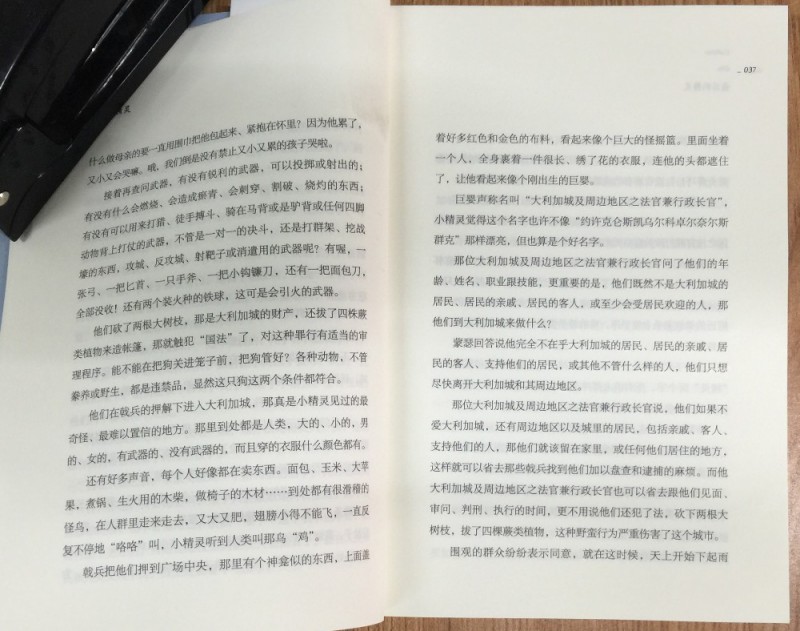 灵
什么做母亲的要一直用围巾把他包起来、紧抱在怀里？因为他累了，
又小又会哭嘛。哦，我们倒是没有禁止又小又累的孩子哭啦。
接着再查问武器，有没有锐利的武器，可以投掷或射出的；
有没有什么会燃烧、会造成瘀青、会刺穿、割破、烧灼的东西；
有没有可以用来打猎、徒手搏斗、骑在马背或是驴背或任何四脚
动物背上打仗的武器，不管是一对一的决斗，还是打群架、挖战
壕的东西，攻城、反攻城、射靶子或消遣用的武器呢？有喔，一
张弓、一把匕首、一只手斧、一把小钩镰刀，还有一把面包刀，
全部没收！还有两个装火种的铁球，这可是会引火的武器。
他们砍了两根大树枝，那是大利加城的财产，还拔了四株蕨
类植物来造帐篷，那就触犯“国法”了，对这种罪行有适当的审
理程序。能不能在把狗关进笼子前，把狗管好？各种动物，不管
豢养或野生，都是违禁品，显然这只狗这两个条件都符合。
他们在戟兵的押解下进入大利加城，那真是小精灵见过的最
奇怪、最难以置信的地方。那里到处都是人类，大的、小的，男
的、女的，有武器的、没有武器的，而且穿的衣服什么颜色都有。
还有好多声音，每个人好像都在卖东西。面包、玉米、大苹
果，煮锅、生火用的木柴，做椅子的木材……到处都有很滑稽的
怪鸟，在人群里走来走去，又大又肥，翅膀小得不能飞，一直反
复不停地“咯咯”叫，小精灵听到人类叫那鸟“鸡”。
戟兵把他们押到广场中央，那里有个神龛似的东西，上面盖
037
着好多红色和金色的布料，看起来像个巨大的怪摇篮。里面坐着
一个人，全身裹着一件很长、绣了花的衣服，连他的头都遮住
了，让他看起来像个刚出生的巨婴。
巨婴声称名叫“大利加城及周边地区之法官兼行政长官”，
小精灵觉得这个名字也许不像“约许克仑斯凯乌尔科卓尔奈尔斯
群克”那样漂亮，但也算是个好名字。
那位大利加城及周边地区之法官兼行政长官问了他们的年
龄、姓名、职业跟技能，更重要的是，他们既然不是大利加城的
居民、居民的亲戚、居民的客人，或至少会受居民欢迎的人，那
他们到大利加城来做什么？
蒙瑟回答说他完全不在乎大利加城的居民、居民的亲戚、居
民的客人、支持他们的居民，或其他不管什么样的人，他们只想
尽快离开大利加城和其周边地区。
那位大利加城及周边地区之法官兼行政长官说，他们如果不
爱大利加城，还有周边地区以及城里的居民，包括亲戚、客人、
支持他们的人，那他们就该留在家里，或任何他们居住的地方，
这样就可以省去那些戟兵找到他们加以盘查和逮捕的麻烦。而他
大利加城及周边地区之法官兼行政长官也可以省去跟他们见面、
审问、判刑、执行的时间，更不用说他们还犯了法，砍下两根大
树枝，拔了四棵蕨类植物，这种野蛮行为严重伤害了这个城市。
围观的群众纷纷表示同意，就在这时候，天上开始下起雨